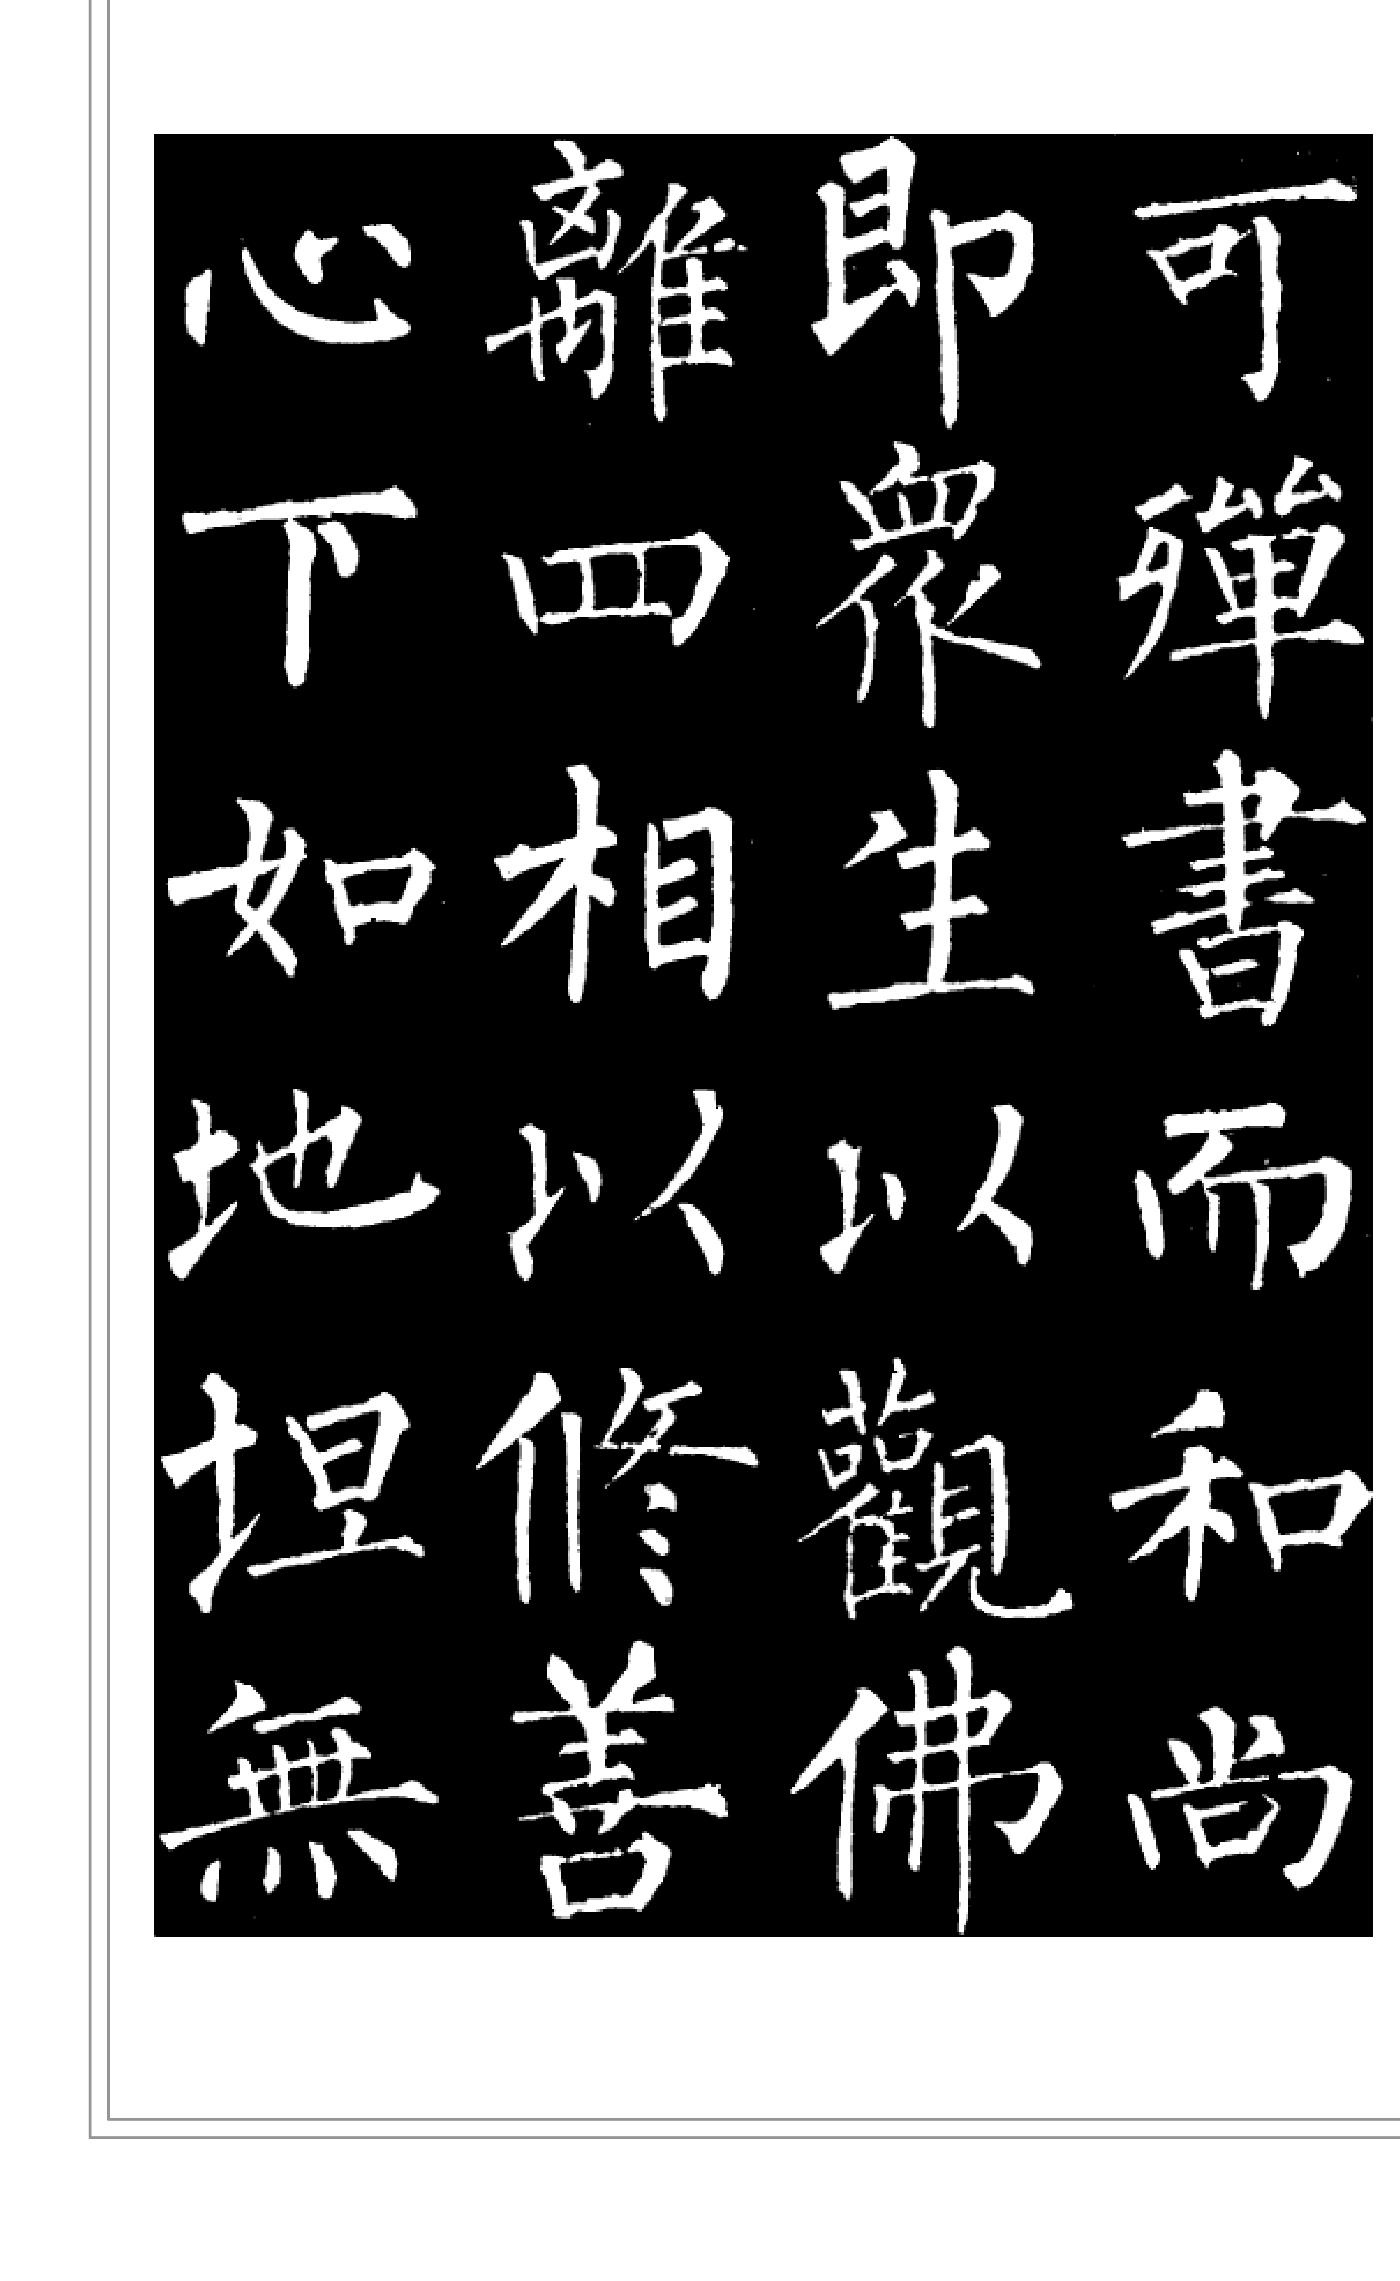 可殫書而和尚
即衆生以觀佛
離四相以修善
心下如地坦無